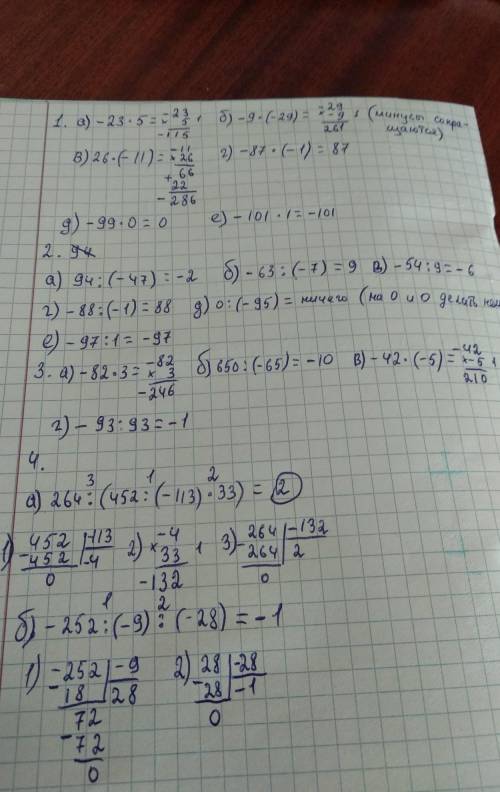 1. а) -23·5 = -23 б) -9·(-29) = -29 (минусы сокра-
× 5 × -9 щаются)
-115 261
в) 26·(-11) = -11 г) -87·(-1) = 87
× 26
+ 66
22
-286
д) -99·0 = 0 е) -101·1 = -101
2. 94
а) 94:(-47) = -2 б) -63:(-7) = 9 в) -54:9 = -6
г) -88:(-1) = 88 д) 0:(-95) = ничего (на 0 и 0 делить
е) -97:1 = -97
3. а) -82·3 = -82 б) 650:(-65) = -10 в) -42·(-5) = -42
× 3 × -5
-246 210
г) -93:93 = -1
4.
3 1 2
а) 264:(452:(-113)·33) = 2
1) -452 | -113 2) × -4 3) -264 | -132
452 | -4 33 264 | 2
0 -132 0
1 2
б) -252:(-9):(-28) = -1
1) -252 | -9 2) 28 | -28
-18 | 28 -28 | -1
72 0
-72
0